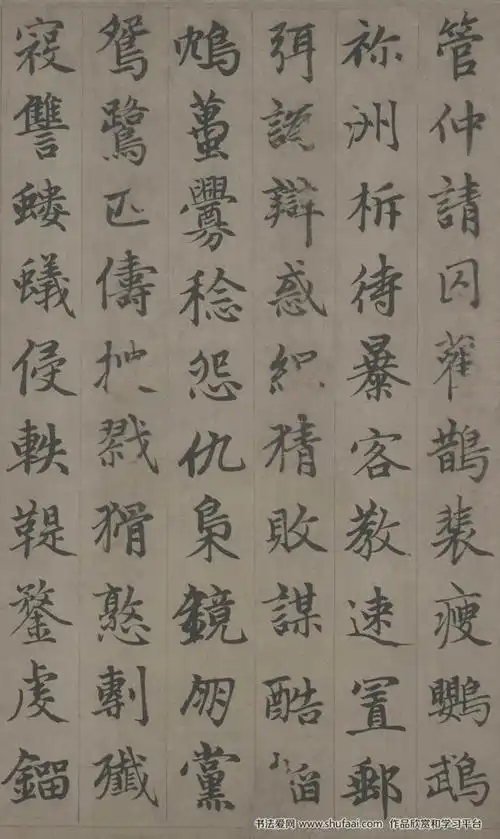 管仲請囚鵲裴瘦鸚鵡
祢洲柝待暴客教速置郵
弭辯惑猜敗謀酷
鴆蠆釁稔怨仇梟鏡朋黨
鴛鷺匹儔戮猾憝剸殲
寇讐螻蟻侵軼鞮鍪虔鎦
书法爱网 www.shufaai.com 作品欣赏和学习平台